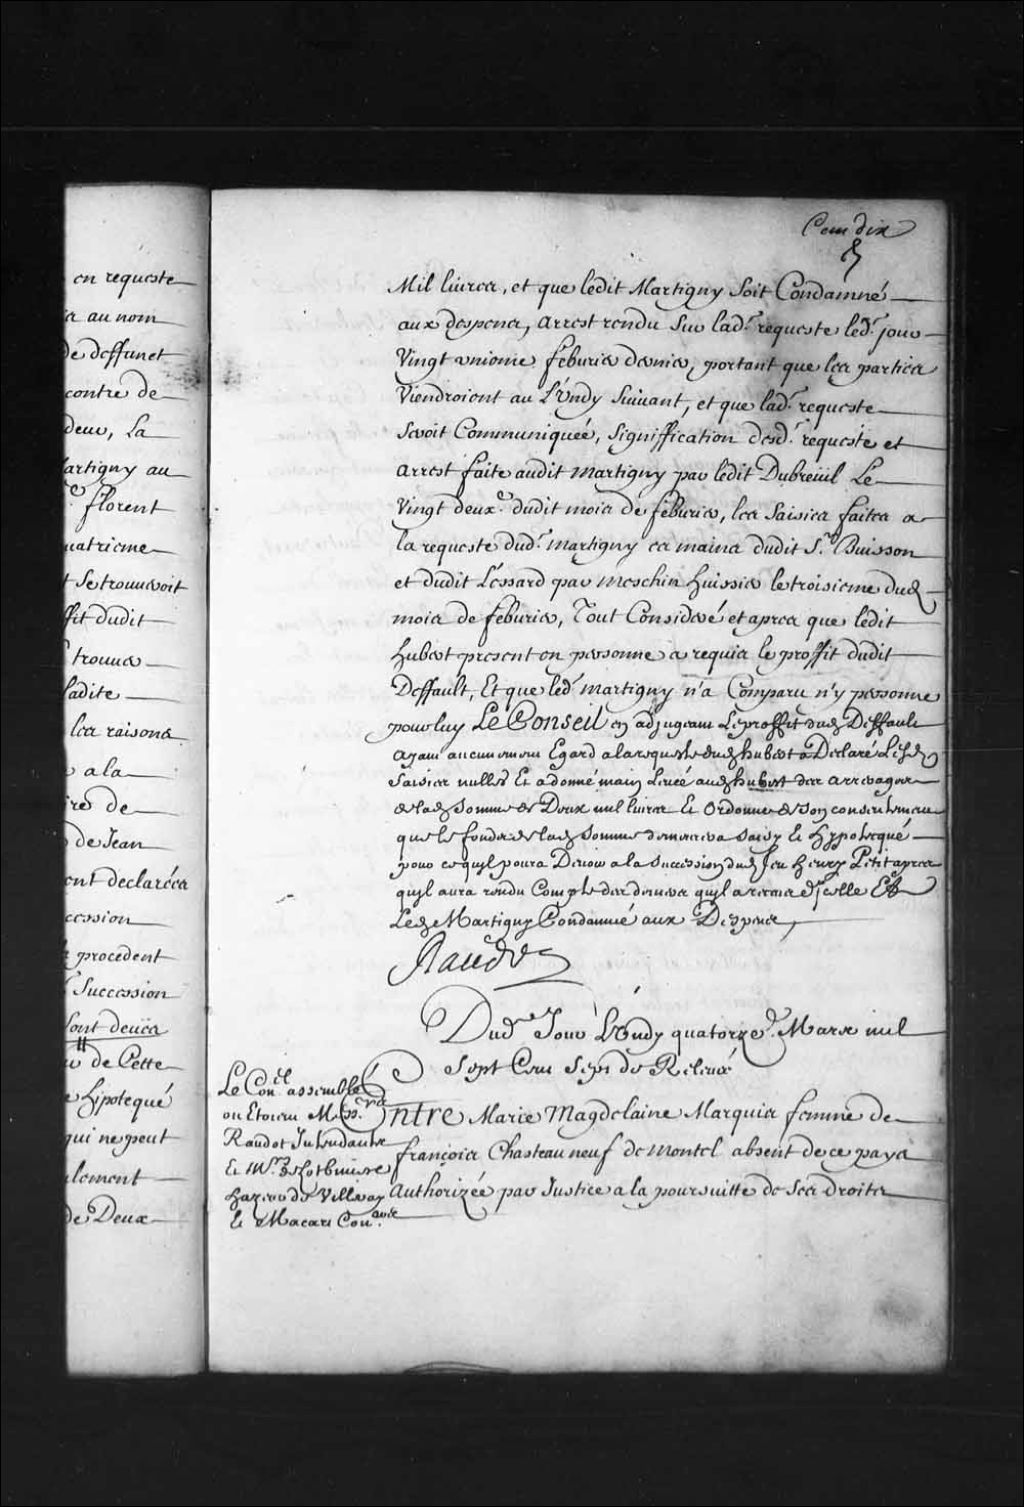 en requeste
au nom
de deffunct
contre de
deux, La
Martigny au
florent
quatrieme
Se trouueroit
proffit dudit
trouuer
ladite
les raisons
a la
de
de Jean
ont declarées
succession
procedent
Succession
sont deües
de Cette
hypotequé
qui ne peut
seulement
de Deux
Cent dix
Mil liures, et que ledit Martigny Soit Condamné
aux despens, arrest rendu Sur lad.e requeste led.t jour
Vingt unieme feburier dernier, portant que les parties
Viendroient au Lündy Suiuant, et que lad.e requeste
Seroit Communiqueé, Signiffication desd.t requeste et
arrest faite audit Martigny par ledit Dubreüil Le
Vingt deux.e dudit mois de feburier, les Saisies faites a
la requeste dud.t Martigny es mains dudit S.r Buisson
et dudit Lessard par Meschin huissier le troisieme dud
mois de feburier, Tout Consideré et apres que ledit
hubert present en personne a requis le proffit dudit
Deffault, Et que led.t Martigny n'a Comparu n'y personne
pour luy Le Conseil en adjugeant Le proffit dud Deffault
ayant aucunement Egard a la requeste dud hubert a Declaré Lesd
Saisies nulles Et a donné main Leueé aud hubert des arrerages
de lad Somme de Deux mil liures Et Ordonne de Son consentement
que le fonds de lad Somme demeurera Saisy Et Hypotequé
pour ce quyl poura Deuoir a la Succession dud feu Henry Petit apres
quyl aura rendu Compte des deniers quyl a receus d'jcelle Et
Led Martigny Condamné aux Despens,
Raudot
Dud.t Jour Lündy quatorze.e Mars mil
Sept Cent Sept de Releueé
Le Con.el assemblé
ou Etoient M.rs
Raudot Intendants
Et M.rs de Lotbiniere
hazeur de Villeray
Et Macart Con.ers
Entre Marie Magdelaine Marquis femme de
françois Chasteauneuf de Montel absent de ce pays
Authorizée par Justice a la poursuitte de Ses droits